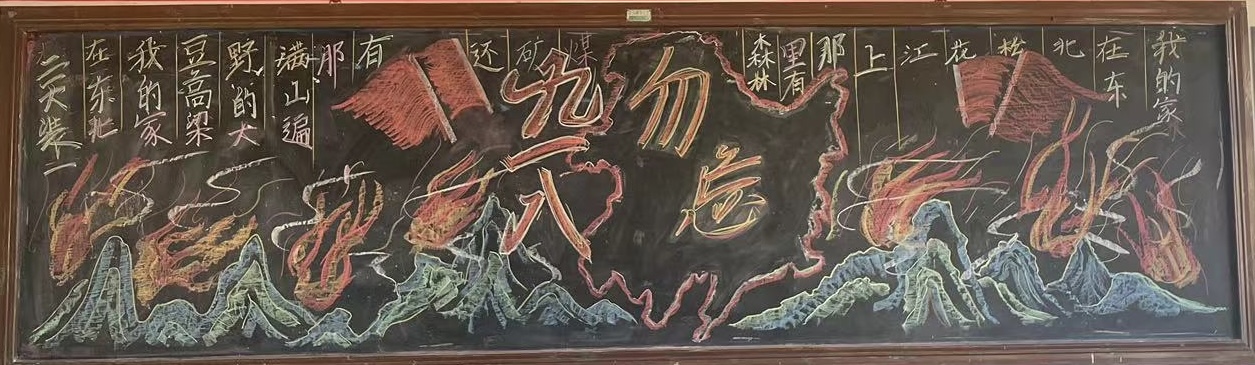 我的家
在东
北
松
花
江
上
那
里有
森林
煤
矿
还
有
那
满山遍
野的大
豆高粱
我的家
在东北
勿忘
九一八